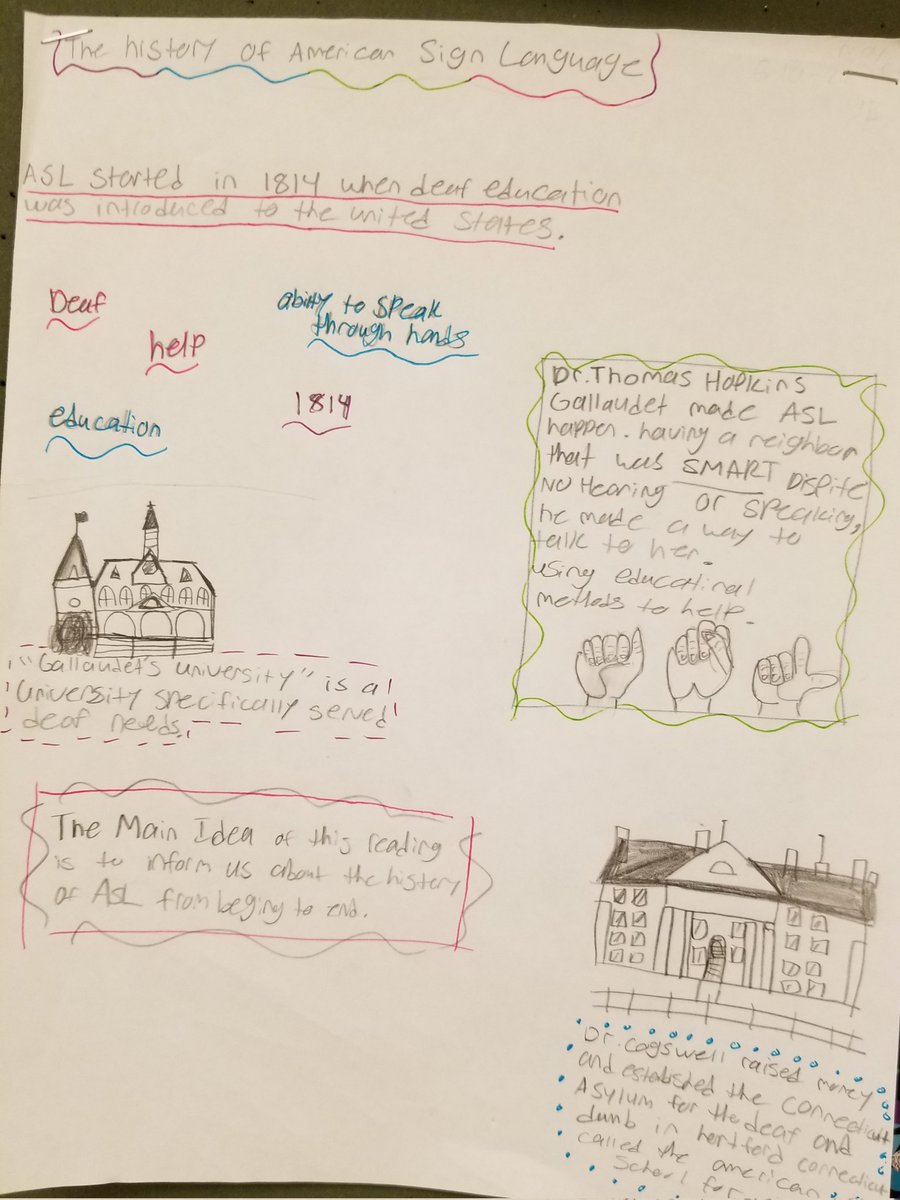 The history of American Sign Language
ASL started in 1814 when deaf education
was introduced to the united states.
Deaf
help
education
abitty to speak
through hands
1814
Dr. Thomas Hopkins
Gallaudet made ASL
happen. having a neighbor
that was SMART Dispite
No Hearing or speaking,
he made a way to
talk to her.
using educatinal
methods to help.
"Gallaudet's university" is a
university specifically served
deaf needs.
The Main Idea of this reading
is to inform us about the history
of ASL from beging to end.
Dr. Cogswell raised money
and established the Connecticut
Asylum for the deaf and
dumb in hertford connecticut
called the american
School for